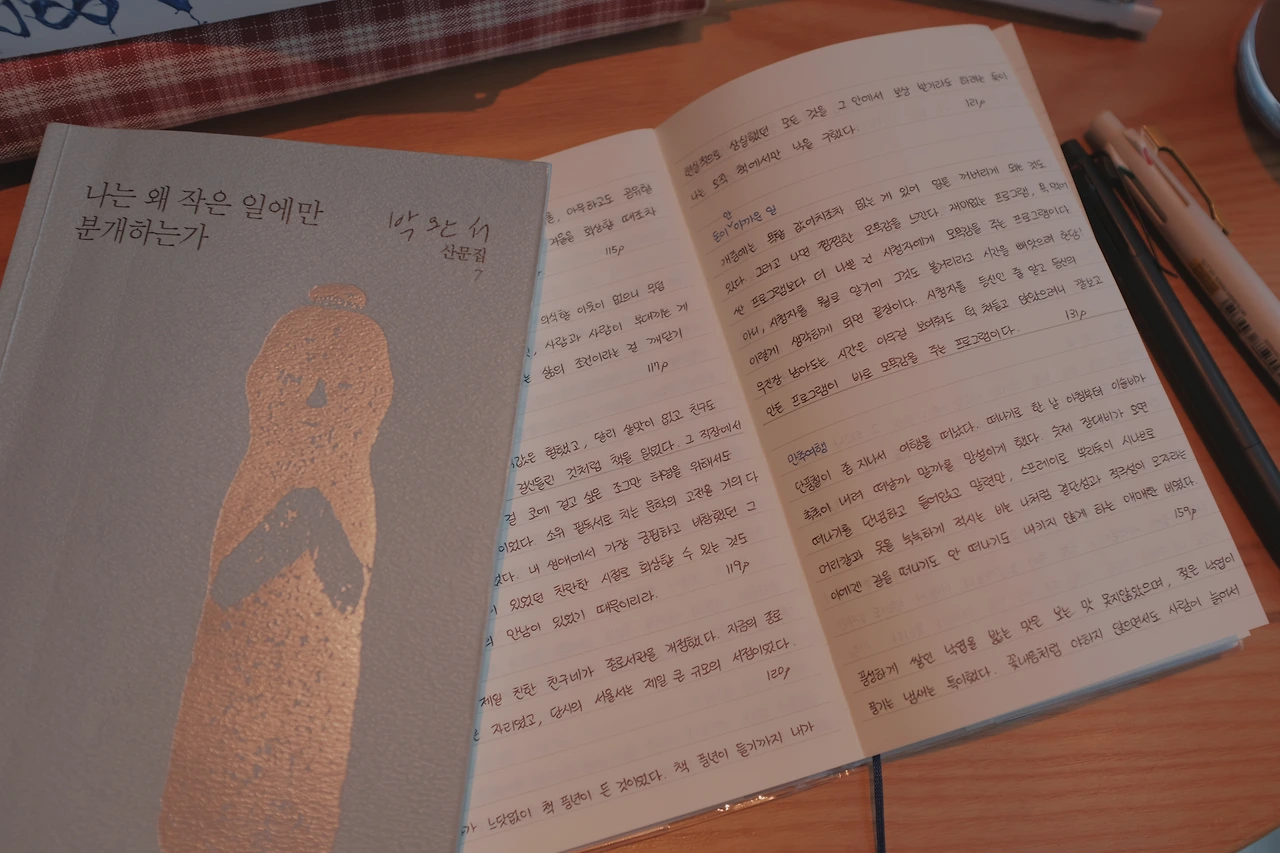 나는 왜 작은 일에만
분개하는가
박완서
산문집
7
, 아무하고도 공유할
겨울을 회상할 때조차
115p
의식할 이웃이 없으니 무엇
, 사람과 사람이 부대끼는 게
는 삶의 조건이라는 걸 깨닫기
117p
값은 헐했고, 달리 살맛이 없고 친구도
걸신들린 것처럼 책을 읽었다. 그 직장에서
걸 코에 걸고 싶은 조그만 허영을 위해서도
이었다. 소위 필독서로 치는 문학의 고전을 거의 다
었다. 내 생애에서 가장 궁핍하고 비참했던 그
있었던 찬란한 시절로 회상할 수 있는 것도
의 만남이 있었기 때문이리라.
119p
제일 친한 친구네가 종로서관을 개점했다. 지금의 종로
자리였고, 당시의 서울서는 제일 큰 규모의 서점이었다.
120p
가 느닷없이 책 풍년이 든 것이었다. 책 풍년이 들기까지 내가
현실적으로 상실했던 모든 것을 그 안에서 보상 받기라도 하려는 듯이
나는 오직 책에서만 낙을 구했다.
121p
안
돈이 아까운 일
개중에는 목향 값어치조차 없는 게 있어 얼른 꺼버리게 되는 것도
있다. 그러고 나면 찜찜한 모욕감을 느낀다. 재미없는 프로그램, 톡 먹이
싼 프로그램보다 더 나쁜 건 시청자에게 모욕감을 주는 프로그램이다.
아니, 시청자를 뭘로 알기에 그것도 볼거리라고 시간을 빼앗으려 한담!
이렇게 생각하게 되면 끝장이다. 시청자를 등신인 줄 알고 등신의
무진장 남아도는 시간은 아무걸 보여줘도 턱 쳐들고 앉았으려니 깔보고
만든 프로그램이 바로 모욕감을 주는 프로그램이다.
131p
만추여행
단풍철이 좀 지나서 여행을 떠났다. 떠나기로 한 날 아침부터 이슬비가
촉촉이 내려 떠날까 말까를 망설이게 했다. 숫제 장대비가 오면
떠나기를 단념하고 들어앉고 말련만, 스프레이로 뿌리듯이 시나브로
머리칼과 옷을 눅눅하게 적시는 비는 나처럼 결단성과 적극성이 모자라는
이에겐 길을 떠나기도 안 떠나기도 내키지 않게 하는 애매한 비였다.
159p
풍성하게 쌓인 낙엽을 밟는 맛은 보는 맛 못지않았으며, 젖은 낙엽이
풍기는 냄새는 독특했다. 꽃내음처럼 야하지 않으면서도 사람이 늙어서